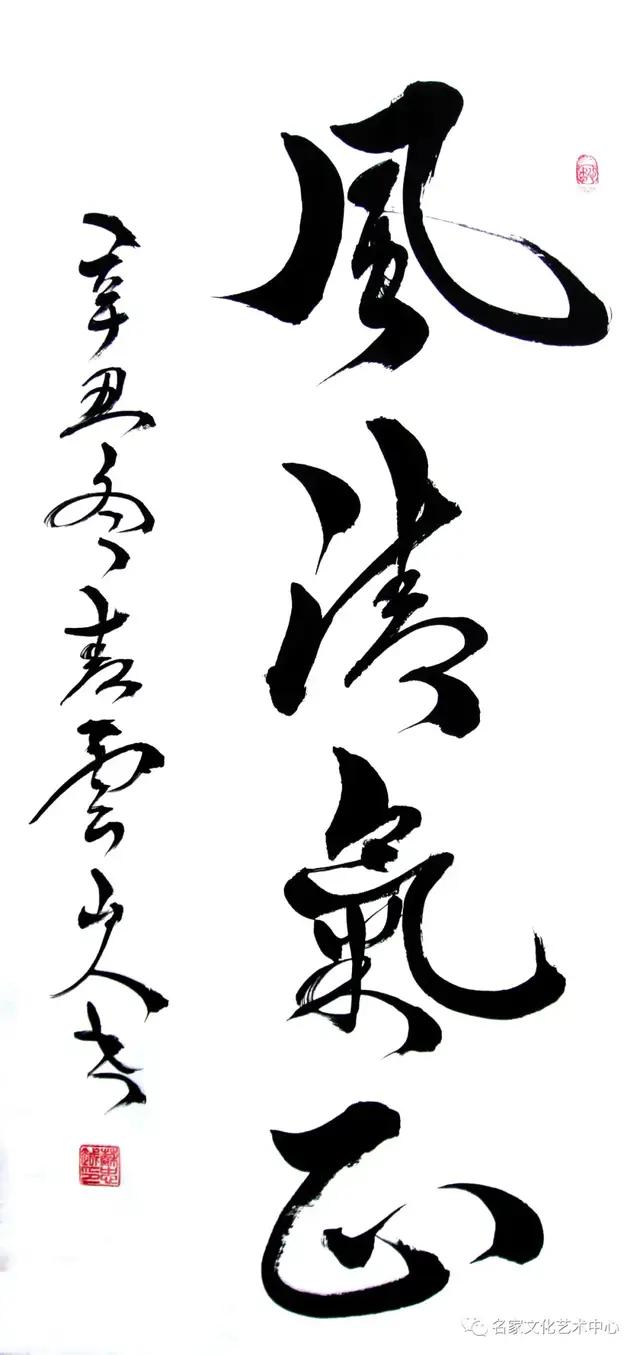 風清氣正
辛丑冬青雲山人書
名家文化艺术中心